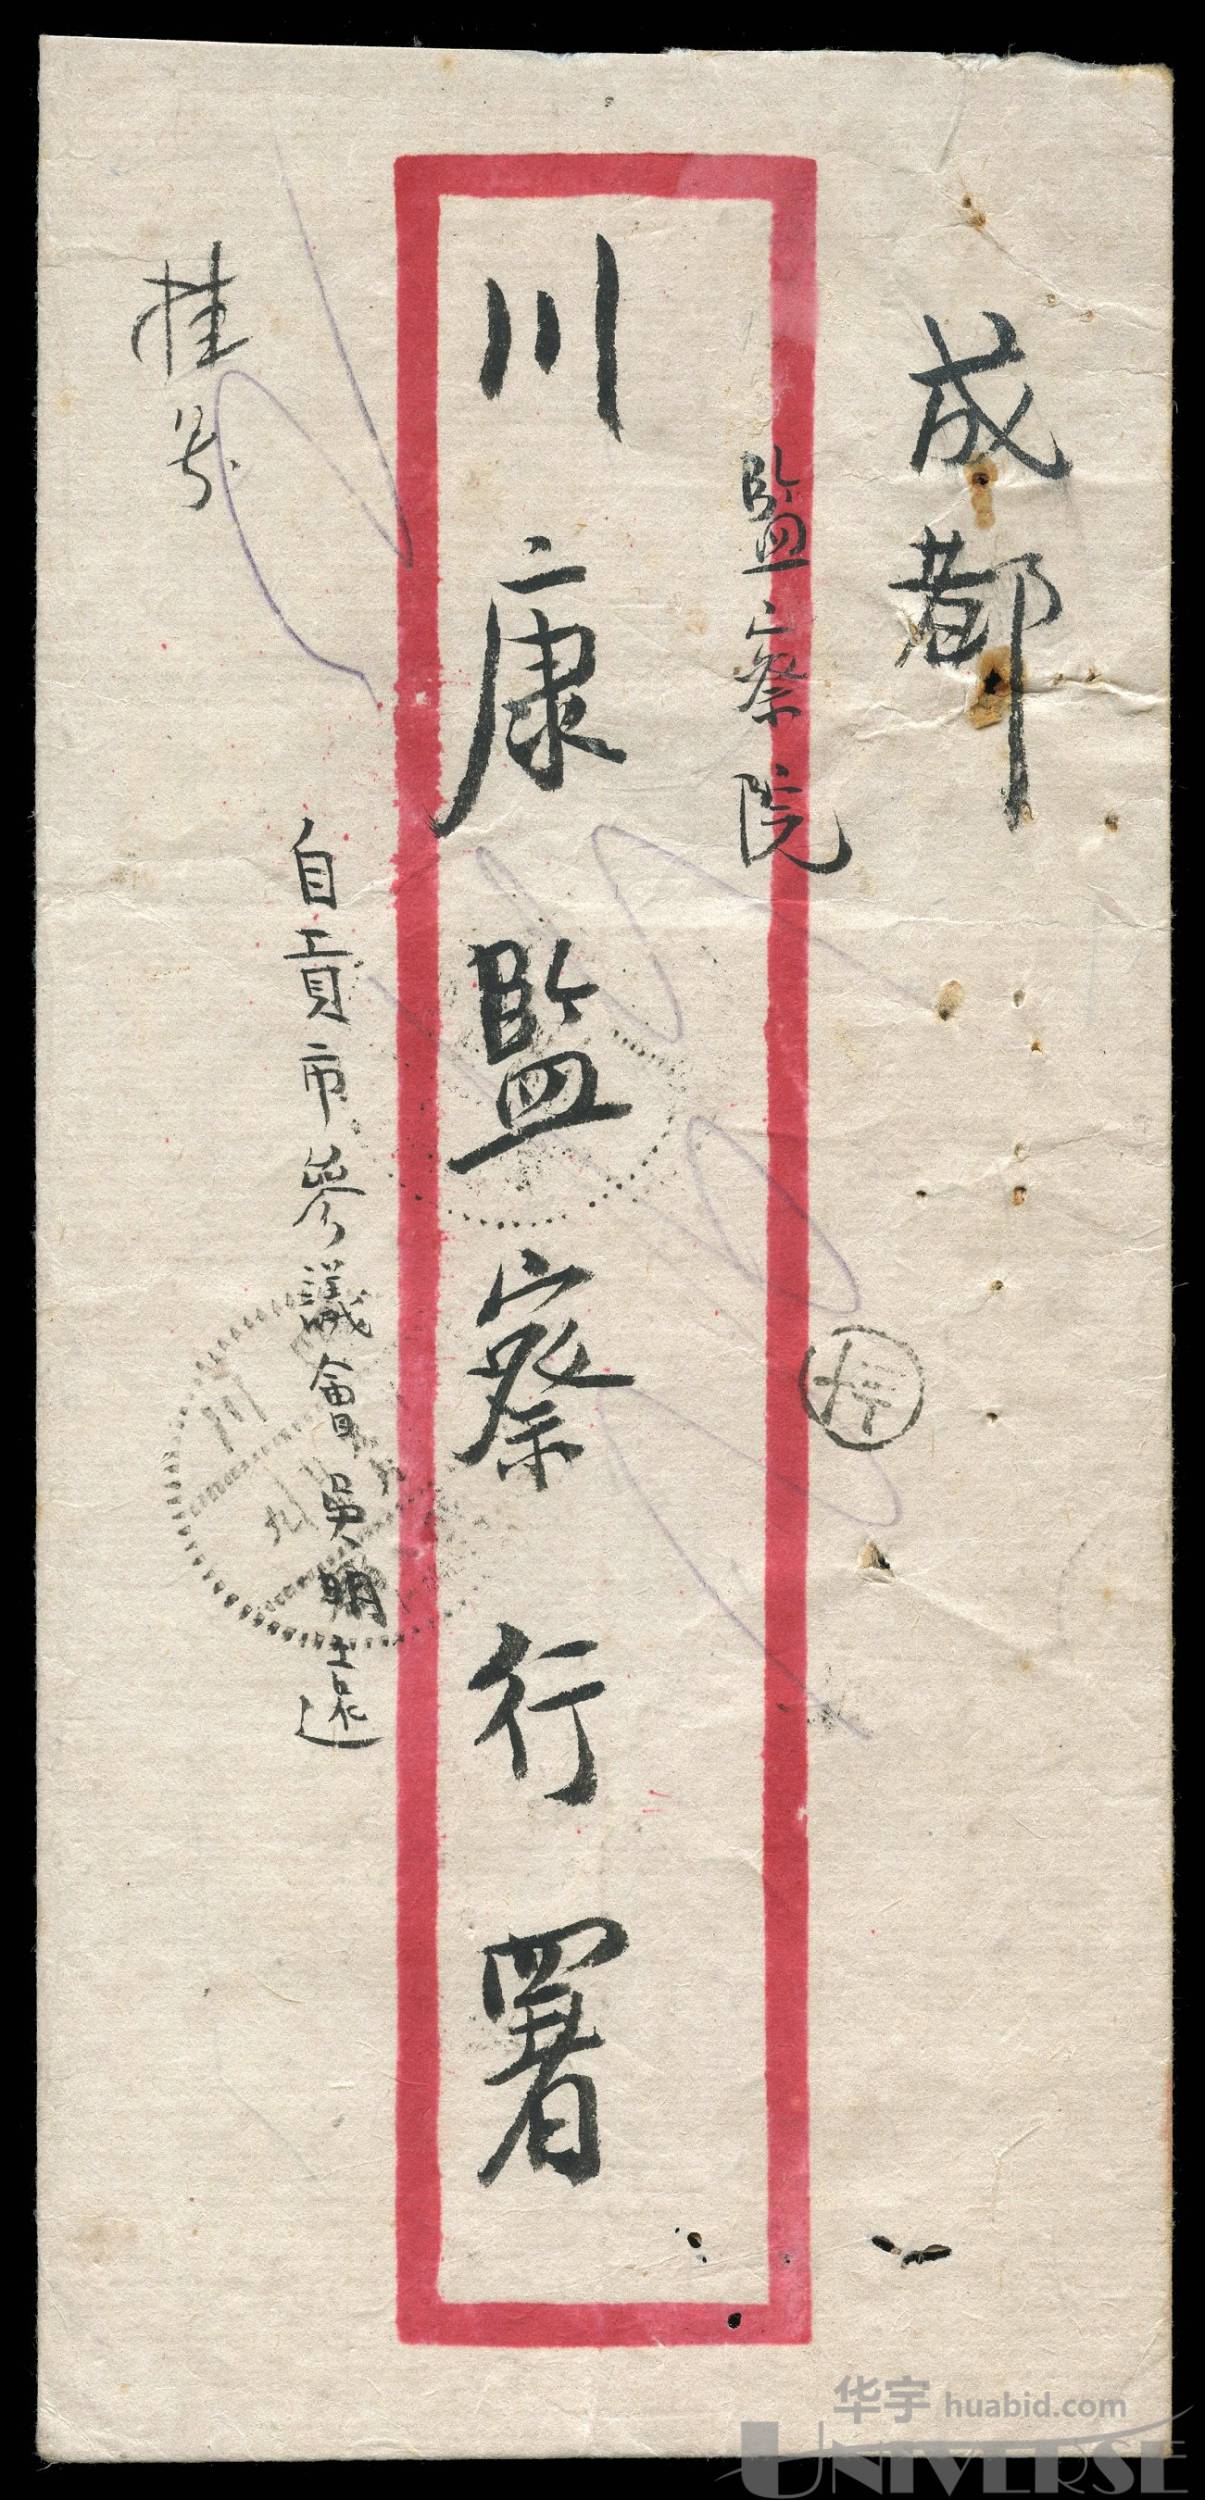 成都
監察院
川康監察行署
自貢市參議會吳明遠
挂号
川
九
华宇 huabid.com
UNIVERSE